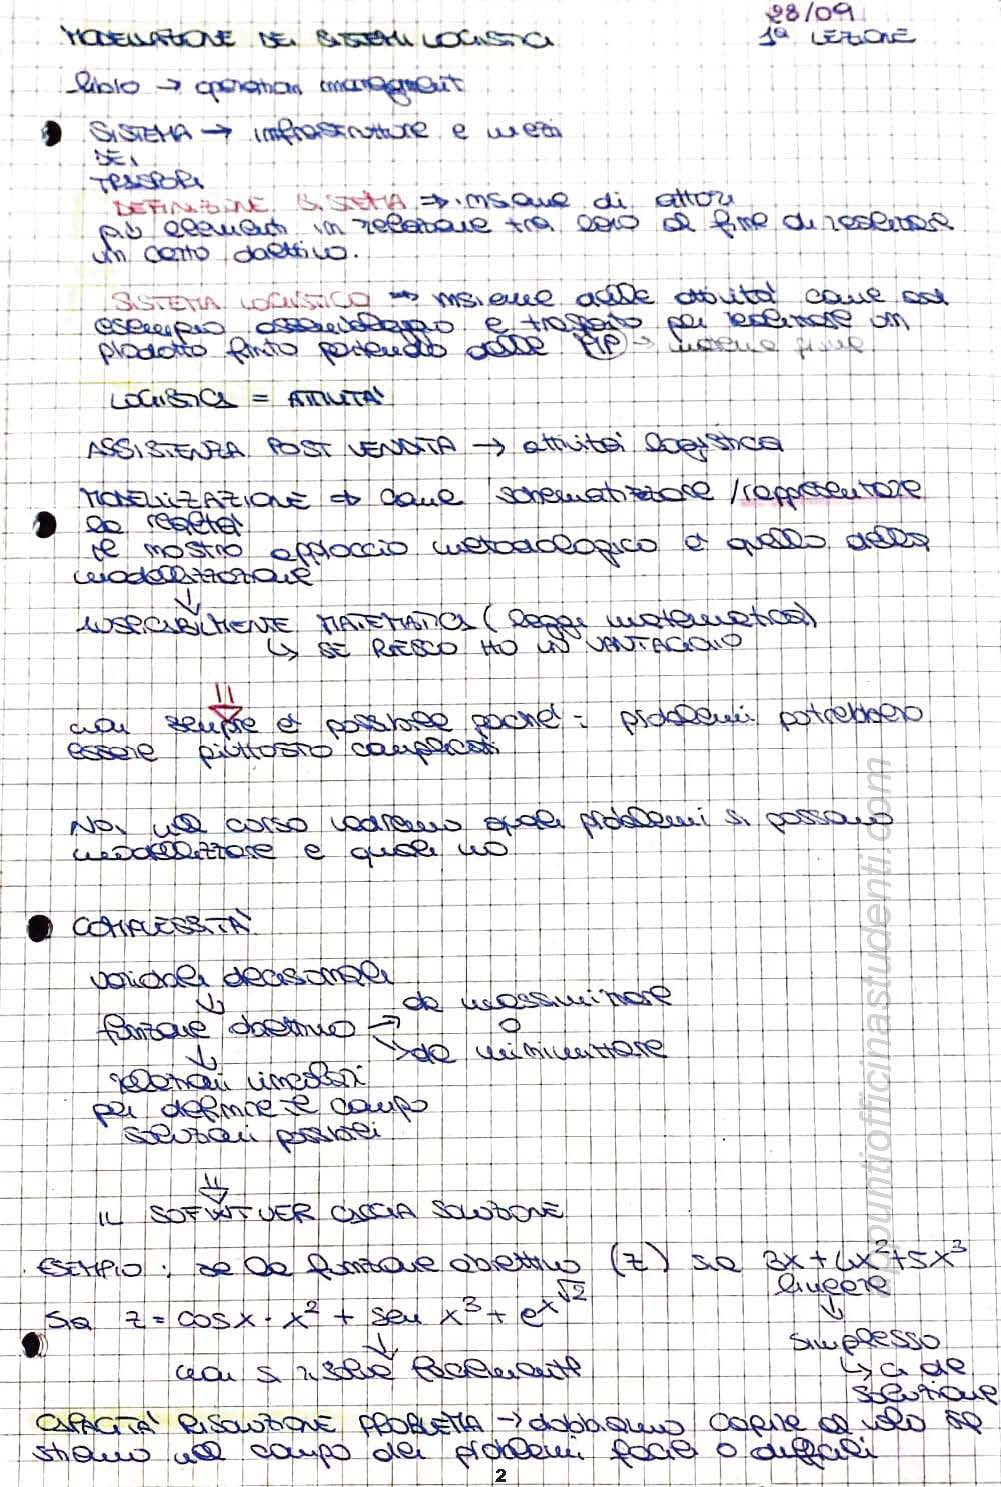 28/09
MODELLAZIONE DEI SISTEMI LOGISTICI 1ª LEZIONE
libro → operation management
SISTEMA → infrastrutture e mezzi
DEI
TRASPORTI
DEFINIZIONE SISTEMA ⇒ insieme di attori
più elementi in relazione tra loro al fine di realizzare
un certo obiettivo.
SISTEMA LOGISTICO ⇒ insieme delle attività come ad
esempio assemblaggio e trasporto per realizzare un
prodotto finito partendo dalle MP → materie prime
LOGISTICA = ATTIVITA'
ASSISTENZA POST VENDITA → attività logistica
MODELLIZZAZIONE ⇒ come schematizzare / rappresentare
la realtà
il nostro approccio metodologico è quello della
modellizzazione
MATEMATICA (leggi matematica)
↳ SE RIESCO HO UN VANTAGGIO
non sempre è possibile poiché : problemi potrebbero
essere piuttosto complicati
Noi nel corso vedremo quali problemi si possono
modellizzare e quali no
COMPLESSITA'
variabili decisionali
da massimizzare
funzione obiettivo → o
da minimizzare
relazioni vincolari
per definire il campo
soluzioni possibili
IL SOFTWER CACCIA SOLUZIONE
ESEMPIO : se la funzione obiettivo (z) sia 3x + 4x² + 5x³
lineare
Sia z = cosx · x² + sen x³ + e^x^√2
simplesso
non si risolve facilmente ↳ ci dà
soluzione
CAPACITA' RISOLUZIONE PROBLEMA → dobbiamo capire al volo se
stiamo nel campo dei problemi facili o difficili
2
appuntiofficinastudenti.com